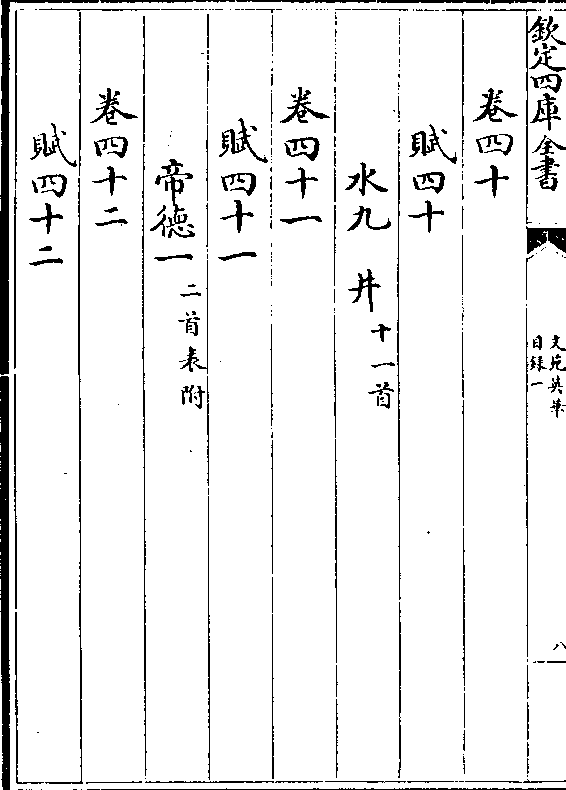 欽定四庫全書
文苑英華
目録一
八
卷四十
賦四十
水九 井十一首
卷四十一
賦四十一
帝德一二首表附
卷四十二
賦四十二